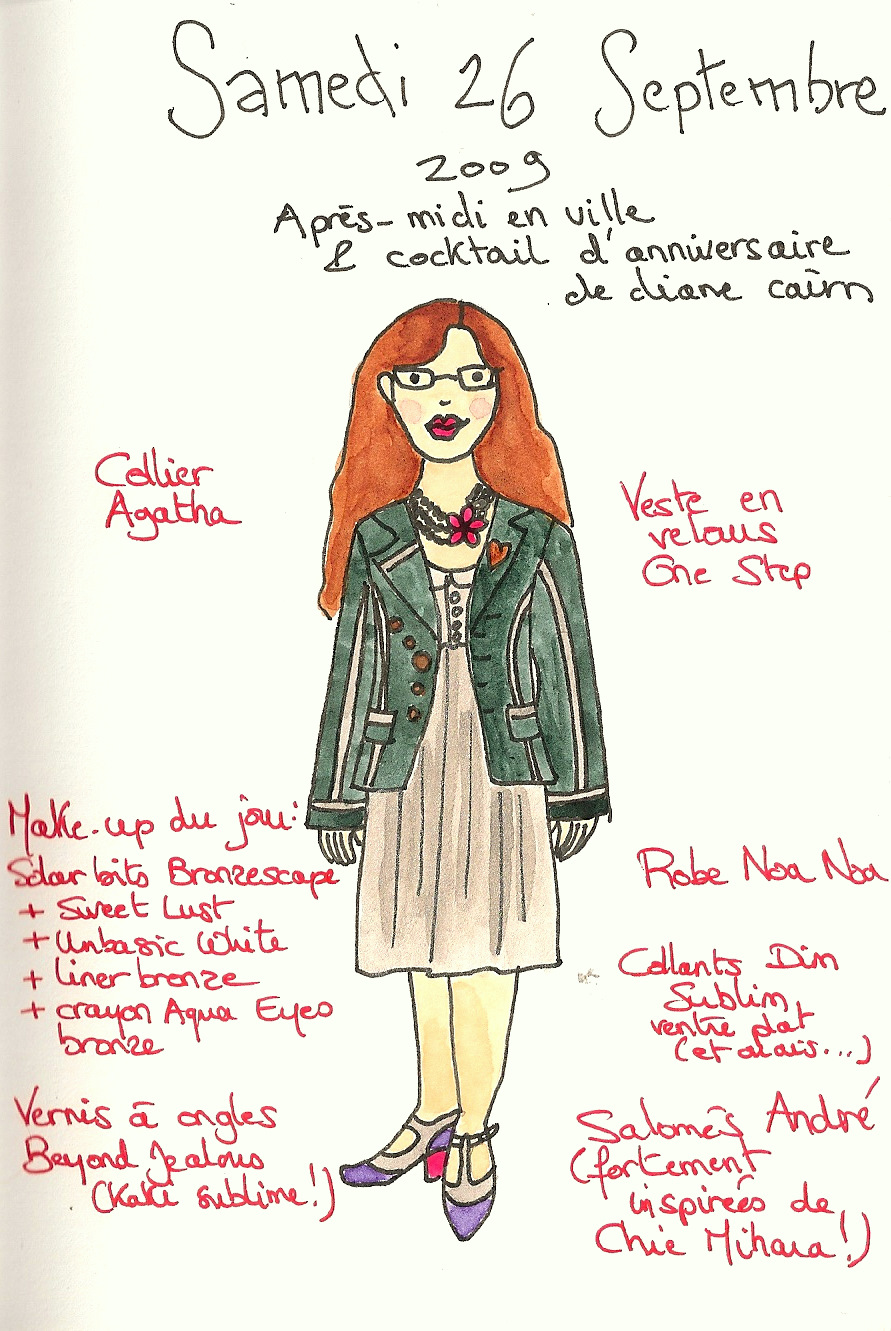 Samedi 26 Septembre
2009
Après-midi en ville
& cocktail d'anniversaire
de diane cairn
Collier
Agatha
Veste en
velours
One Step
Make-up du jour:
Solar bits Bronzescape
+ Sweet Lust
+ Unbasic White
+ liner bronze
+ crayon Aqua Eyes
bronze
Vernis à ongles
Beyond Jealous
(Kaki sublime!)
Robe Noa Noa
Collants Dim
Sublim
ventre plat
(et ouais...)
Salomés André
(fortement
inspirées de
Chie Mihara!)